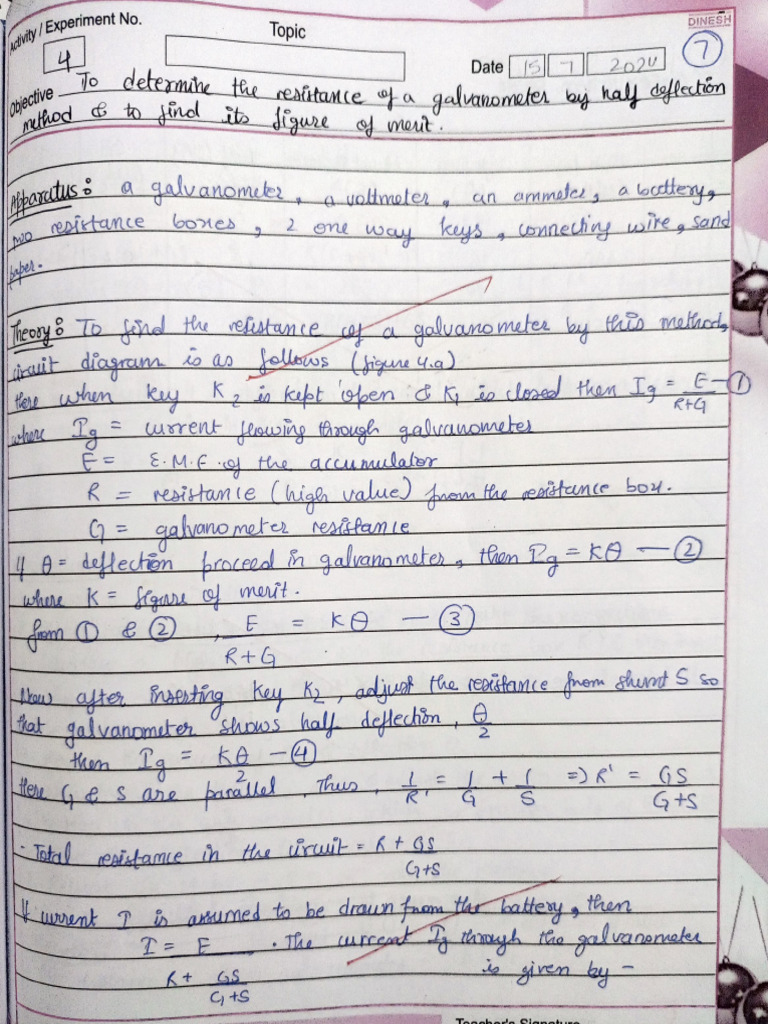 Activity / Experiment No.
Topic
DINESH
4
7
Date 15 7 2024
Objective To determine the resistance of a galvanometer by half deflection
method & to find its figure of merit.
Apparatus: a galvanometer, a voltmeter, an ammeter, a battery,
two resistance boxes, 2 one way keys, connecting wire, sand
paper.
Theory: To find the resistance of a galvanometer by this method,
circuit diagram is as follows (figure 4.a)
Here when key K₂ is kept open & K₁ is closed then Ig = E/(R+G) — ①
where Ig = current flowing through galvanometer
E = E.M.F. of the accumulator
R = resistance (high value) from the resistance box.
G = galvanometer resistance
If θ = deflection proceed in galvanometer, then Ig = Kθ — ②
where K = figure of merit.
from ① & ②, E/(R+G) = Kθ — ③
Now after inserting key K₂, adjust the resistance from shunt S so
that galvanometer shows half deflection, θ/2
then Ig = Kθ/2 — ④
Here G & S are parallel. Thus, 1/R' = 1/G + 1/S => R' = GS/(G+S)
- Total resistance in the circuit = R + GS/(G+S)
If current I is assumed to be drawn from the battery, then
I = E/(R + GS/(G+S)) . The current Ig through the galvanometer
is given by -
Teacher's Signature